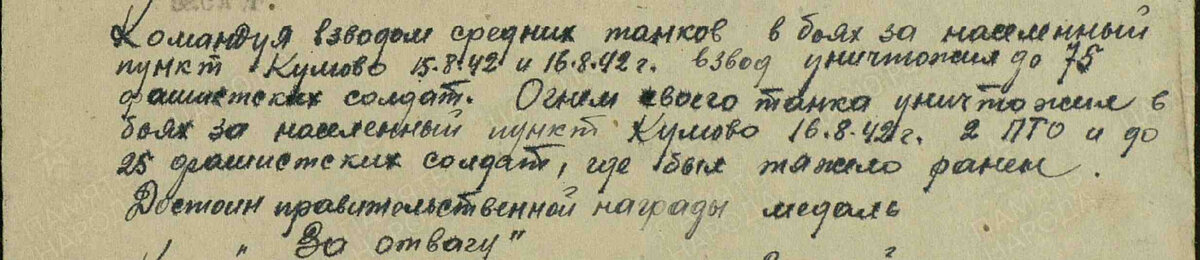 Командуя взводом средних танков в боях за населенный
пункт Кумово 15.8.42 и 16.8.42 г. взвод уничтожил до 75
фашистских солдат. Огнем своего танка уничтожил в
боях за населенный пункт Кумово 16.8.42 г. 2 ПТО и до
25 фашистских солдат, где был тяжело ранен.
Достоин правительственной награды медаль
"За отвагу"